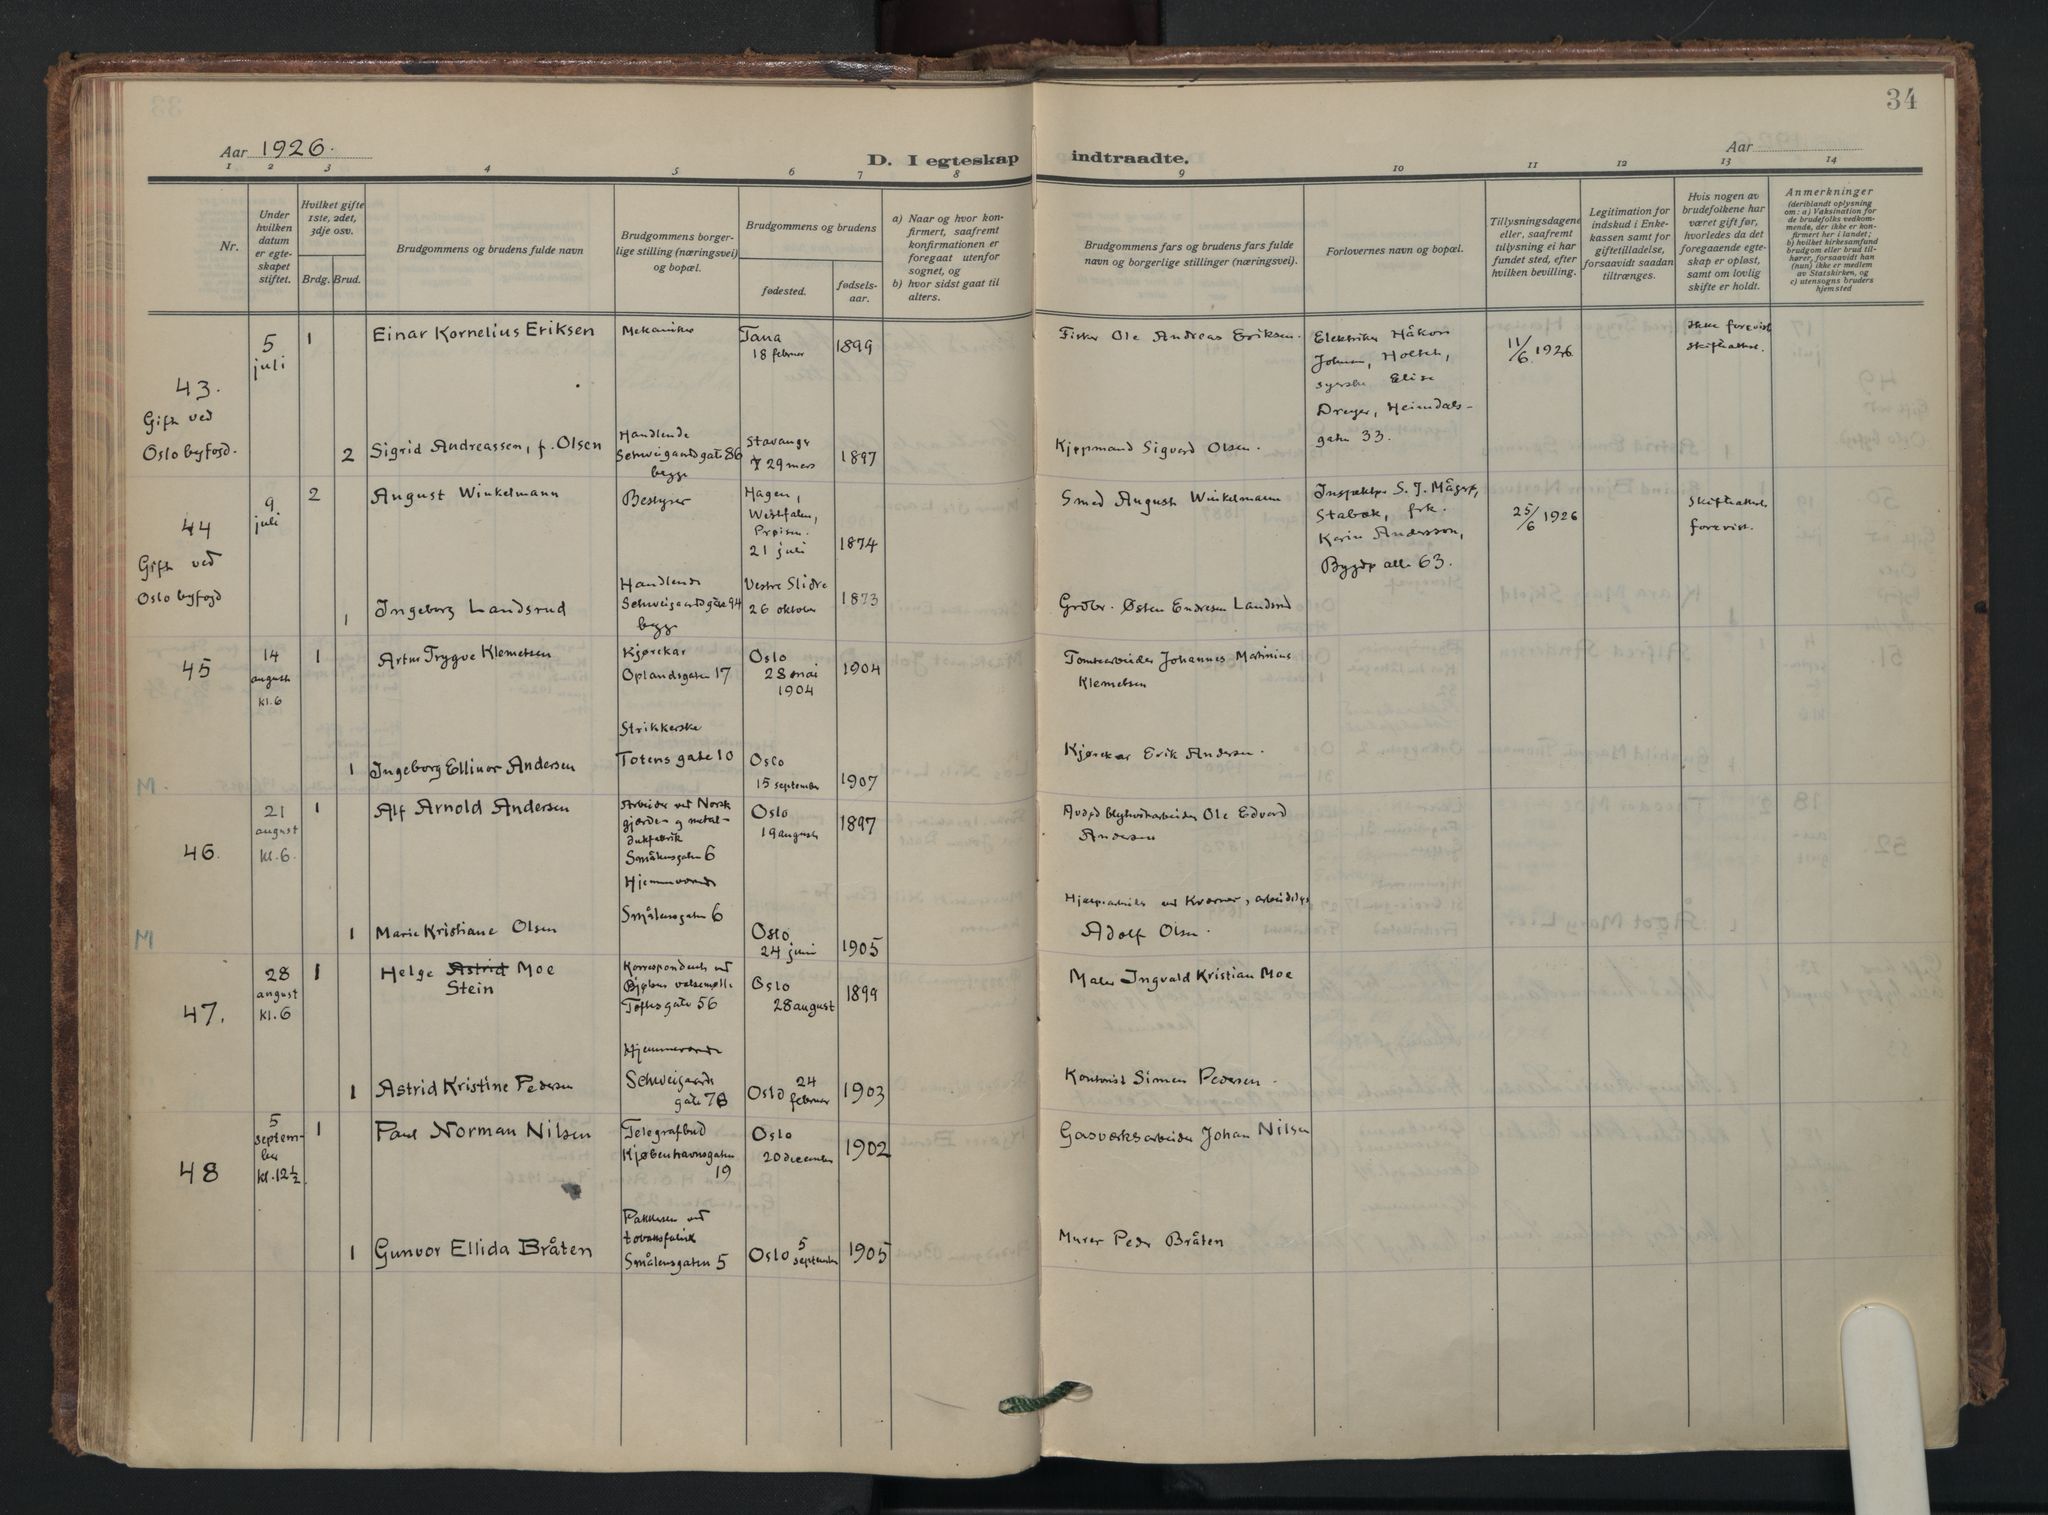 34
Aar 1926.
D. I egteskap indtraadte.
Aar
1 2 3 4 5 6 7 8 9 10 11 12 13 14
Nr.
Under hvilken datum er egteskapet stiftet.
Hvilket gifte 1ste, 2det, 3dje osv.
Brdg. Brud.
Brudgommens og brudens fulde navn
Brudgommens borgerlige stilling (næringsvei) og bopæl.
Brudgommens og brudens
fødested.
fødselsaar.
a) Naar og hvor konfirmert, saafremt konfirmationen er foregaat utenfor sognet, og
b) hvor sidst gaat til alters.
Brudgommens fars og brudens fars fulde navn og borgerlige stillinger (næringsvei).
Forlovernes navn og bopæl.
Tillysningsdagene eller, saafremt tillysning ei har fundet sted, efter hvilken bevilling.
Legitimation for indskud i Enkekassen samt for giftetilladelse, forsaavidt saadan tiltrænges.
Hvis nogen av brudefolkene har været gift før, hvorledes da det foregaaende egteskap er opløst, samt om lovlig skifte er holdt.
Anmerkninger
(deriblandt oplysning om: a) Vaksination for de brudefolks vedkommende, der ikke er konfirmert her i landet; b) hvilket kirkesamfund brudgom eller brud tilhører, forsaavidt han (hun) ikke er medlem av Statskirken, og c) utensogns bruders hjemsted
43.
Gift ved
Oslo byfogd.
5
juli
1
Einar Kornelius Eriksen
Mekaniker
Tana
18 februar
1899
Fisker Ole Andreas Eriksen.
Elektriker Håkon
Johnsen, Holtet,
syerske Elise
Dreyer, Heimdals-
gaten 33.
11/6 1926
skifteattest.
2
Sigrid Andreassen, f. Olsen
Handlende
Schweigaardsgate 86
begge
Stavanger
29 mars
1897
Kjøpmand Sigvard Olsen.
44
Gift ved
Oslo byfogd
9
juli
2
August Winkelmann
Bestyrer
Hagen,
Westfalen,
Prøisen.
21 juli
1874
Smed August Winkelmann
Inspektør S. J.
Stabæk, frk.
Karin Andersson,
Bygdø alle 63.
25/6 1926
Skifteattest
forevist.
1
Ingeborg Landsrud
Handlende
Schweigaardsgate 94
begge
Vestre Slidre
26 oktober
1873
Grdbr. Østen Endresen Landsrud
45
14
august
kl. 6
1
Artur Trygve Klemetsen
Kjørekar
Oplandsgaten 17
Oslo
28 mai
1904
1904
Tomtearbeider Johannes Matinius
Klemetsen
M.
1
Ingeborg Ellinor Andersen
Strikkerske
Totens gate 10
Oslo
15 september
1907
Kjørekar Erik Andersen.
46.
21
august
kl. 6.
1
Alf Arnold Andersen
Arbeider ved Norsk
gjærde- og metal-
dukfabrik
Smålensgaten 6
Oslo
19 august
1897
Avdød blyhvitarbeider Ole Edvard
Andersen
M
1
Marie Kristiane Olsen
Hjemmeværende
Smålensgaten 6
Oslo
24 juni
1905
Hjælpearbeider ved Kværner, arbeidsløs
Adolf Olsen.
47.
28
august
kl. 6
1
Helge Astrid Moe
Stein
Korrespondent ved
Bjølsen valsemølle
Toftesgate 56
Oslo
28 august
1899
Maler Ingvald Kristian Moe
1
Astrid Kristine Pedersen
Hjemmeværende
Schweigaards
gate 78
Oslo 24 februar
1903
Kontorist Simen Pedersen.
48
5
septem-
ber
kl. 12½
1
Paul Norman Nilsen
Telegrafbud
Kjøbenhavnsgaten
19
Oslo
20 december
1902
Gasverksarbeider Johan Nilsen
1
Gunvor Ellida Bråten
Pakkerske ved
tobaksfabrik
Smålensgaten 5
Oslo 5 september
1905
Murer Peder Bråten